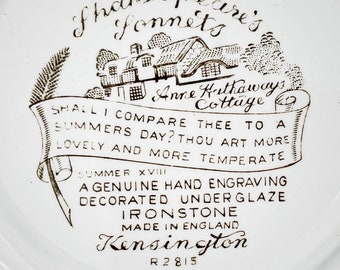 Shakespeare's
Sonnets
Anne Hathaways
Cottage
SHALL I COMPARE THEE TO A
SUMMERS DAY? THOU ART MORE
LOVELY AND MORE TEMPERATE
SUMMER XVIII
A GENUINE HAND ENGRAVING
DECORATED UNDERGLAZE
IRONSTONE
MADE IN ENGLAND
Kensington
R2815